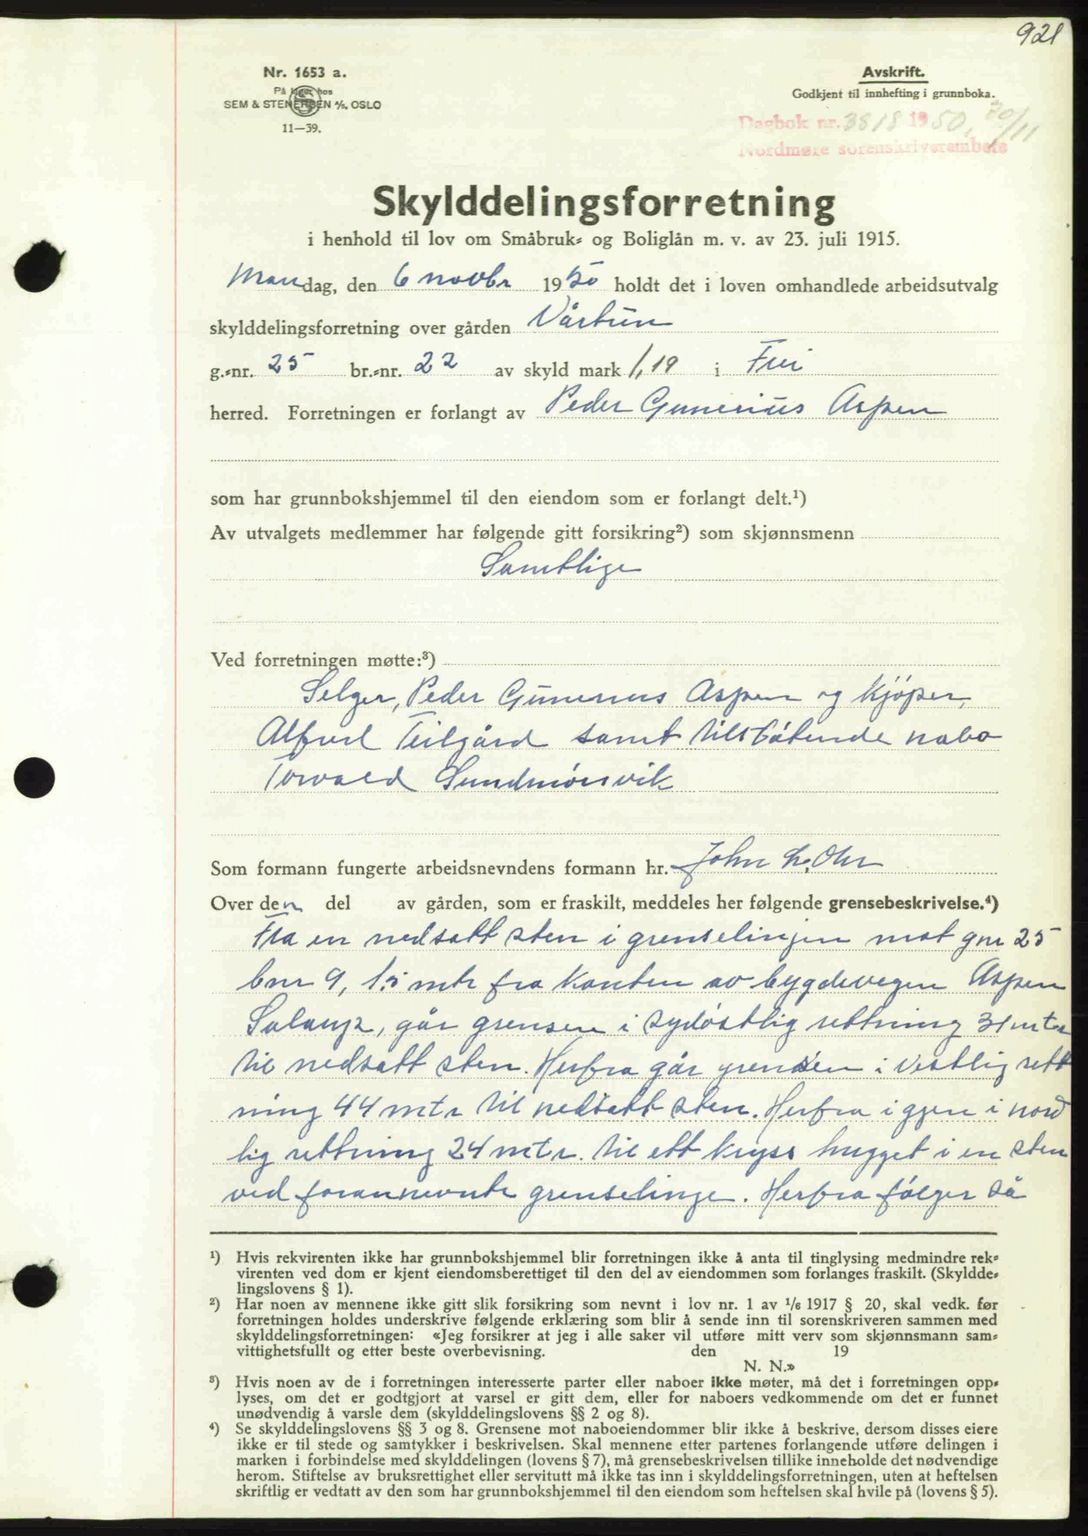 921
Nr. 1653 a.
På lager hos
SEM & STENERSEN A/S, OSLO
11—39.
Avskrift.
Godkjent til innhefting i grunnboka.
Dagbok nr. 3818 1950, 20/11
Nordmøre sorenskriverembete
Skylddelingsforretning
i henhold til lov om Småbruk- og Boliglån m. v. av 23. juli 1915.
Mandag, den 6 novbr 1950 holdt det i loven omhandlede arbeidsutvalg
skylddelingsforretning over gården Vårtun
g.-nr. 25 br.-nr. 22 av skyld mark 1,19 i Frei
herred. Forretningen er forlangt av Peder Gunerius Aspen
som har grunnbokshjemmel til den eiendom som er forlangt delt.¹)
Av utvalgets medlemmer har følgende gitt forsikring²) som skjønnsmenn
Samtlige
Ved forretningen møtte:³)
Selger, Peder Gunerius Aspen og Kjöper,
Alfred Teilgård samt tilstötende nabo
Torvald Sundmörsvik
Som formann fungerte arbeidsnevndens formann hr. John L. Ohr
Over den del av gården, som er fraskilt, meddeles her følgende grensebeskrivelse.⁴)
Fra en nedsatt sten i grenselinjen mot gnr 25
bnr 9, 1.5 mtr fra kanten av bygdevegen Aspen
går grensen i sydöstlig rettning 31 mtr
til nedsatt sten. Herfra går grensen i vestlig rett
ning 44 mtr til nedsatt sten. Herfra igjen i nord
lig rettning 24 mtr. til ett kryss hugget i en sten
ved forannevnte grenselinje. Herfra fölger så
¹) Hvis rekvirenten ikke har grunnbokshjemmel blir forretningen ikke å anta til tinglysing medmindre rek-
virenten ved dom er kjent eiendomsberettiget til den del av eiendommen som forlanges fraskilt. (Skyldde-
lingslovens § 1).
²) Har noen av mennene ikke gitt slik forsikring som nevnt i lov nr. 1 av ¹/₆ 1917 § 20, skal vedk. før
forretningen holdes underskrive følgende erklæring som blir å sende inn til sorenskriveren sammen med
skylddelingsforretningen: «Jeg forsikrer at jeg i alle saker vil utføre mitt verv som skjønnsmann sam-
vittighetsfullt og etter beste overbevisning. den 19
N. N.»
³) Hvis noen av de i forretningen interesserte parter eller naboer ikke møter, må det i forretningen opp-
lyses, om det er godtgjort at varsel er gitt dem, eller for naboers vedkommende om det er funnet
unødvendig å varsle dem (skylddelingslovens §§ 2 og 8).
⁴) Se skylddelingslovens §§ 3 og 8. Grensene mot naboeiendommer blir ikke å beskrive, dersom disses eiere
ikke er til stede og samtykker i beskrivelsen. Skal mennene etter partenes forlangende utføre delingen i
marken i forbindelse med skylddelingen (lovens § 7), må grensebeskrivelsen tillike inneholde det nødvendige
herom. Stiftelse av bruksrettighet eller servitutt må ikke tas inn i skylddelingsforretningen, uten at heftelsen
skriftlig er vedtatt av den som har grunnbokshjemmel til den eiendom som heftelsen skal hvile på (lovens § 5).